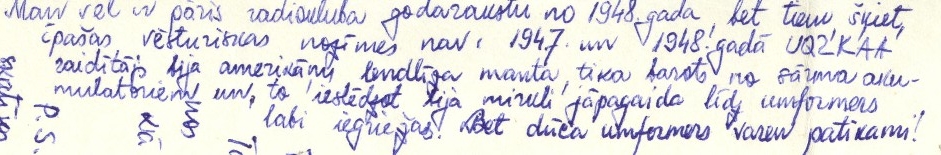 Man vēl ir pāris radiokluba godarakstu no 1948. gada, bet tiem šķiet,
īpašas vēsturiskas nozīmes nav. 1947. un 1948. gadā UQ2KAA
raidītājs bija amerikāņu lendlīza manta, tika barots no sārma aku-
mulatoriem un, to ieslēdzot bija mirkli jāpagaida līdz umformers
labi iegriežas. Bet dūca umformers varen patīkami!
P.S.